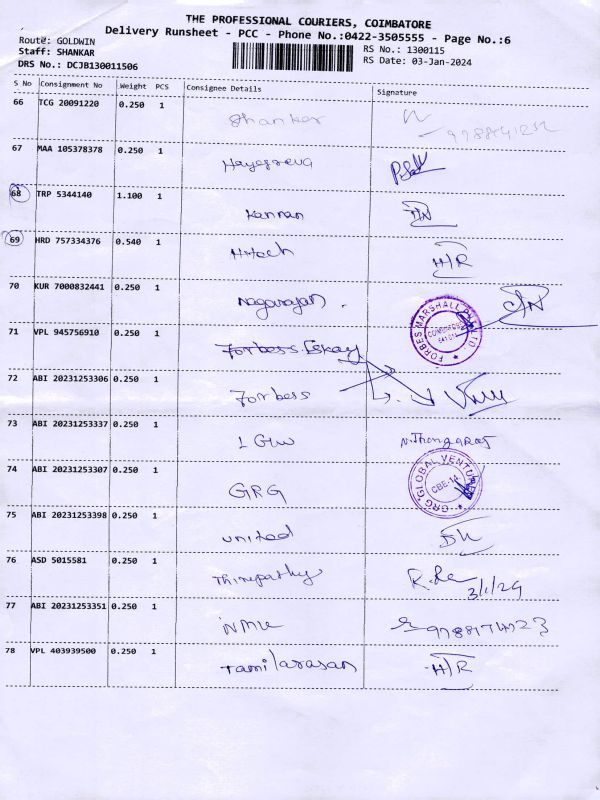 THE PROFESSIONAL COURIERS, COIMBATORE
Delivery Runsheet - PCC - Phone No.:0422-3505555 - Page No.:6
Route: GOLDWIN
Staff: SHANKAR
RS No.: 1300115
DRS No.: DCJB130011506
RS Date: 03-Jan-2024
S No Consignment No Weight PCS Consignee Details Signature
66 TCG 20091220 0.250 1 Shanker
67 MAA 105378378 0.250 1 Hayagreeva
68 TRP 5344140 1.100 1 Kannan
69 HRD 757334376 0.540 1 Hitech H/R
70 KUR 7000832441 0.250 1 Nagarajan
FORBES MARSHALL
71 VPL 945756910 0.250 1 Forbess. Eskay
72 ABI 20231253306 0.250 1 Forbess
73 ABI 20231253337 0.250 1 LGW N.Thangaraj
74 ABI 20231253307 0.250 1 GRG
GRG GLOBAL VENTURES
CBE-14
75 ABI 20231253398 0.250 1 United
76 ASD 5015581 0.250 1 Thirupathy
3/1/24
77 ABI 20231253351 0.250 1
78 VPL 403939500 0.250 1 Tamilarasan H/R